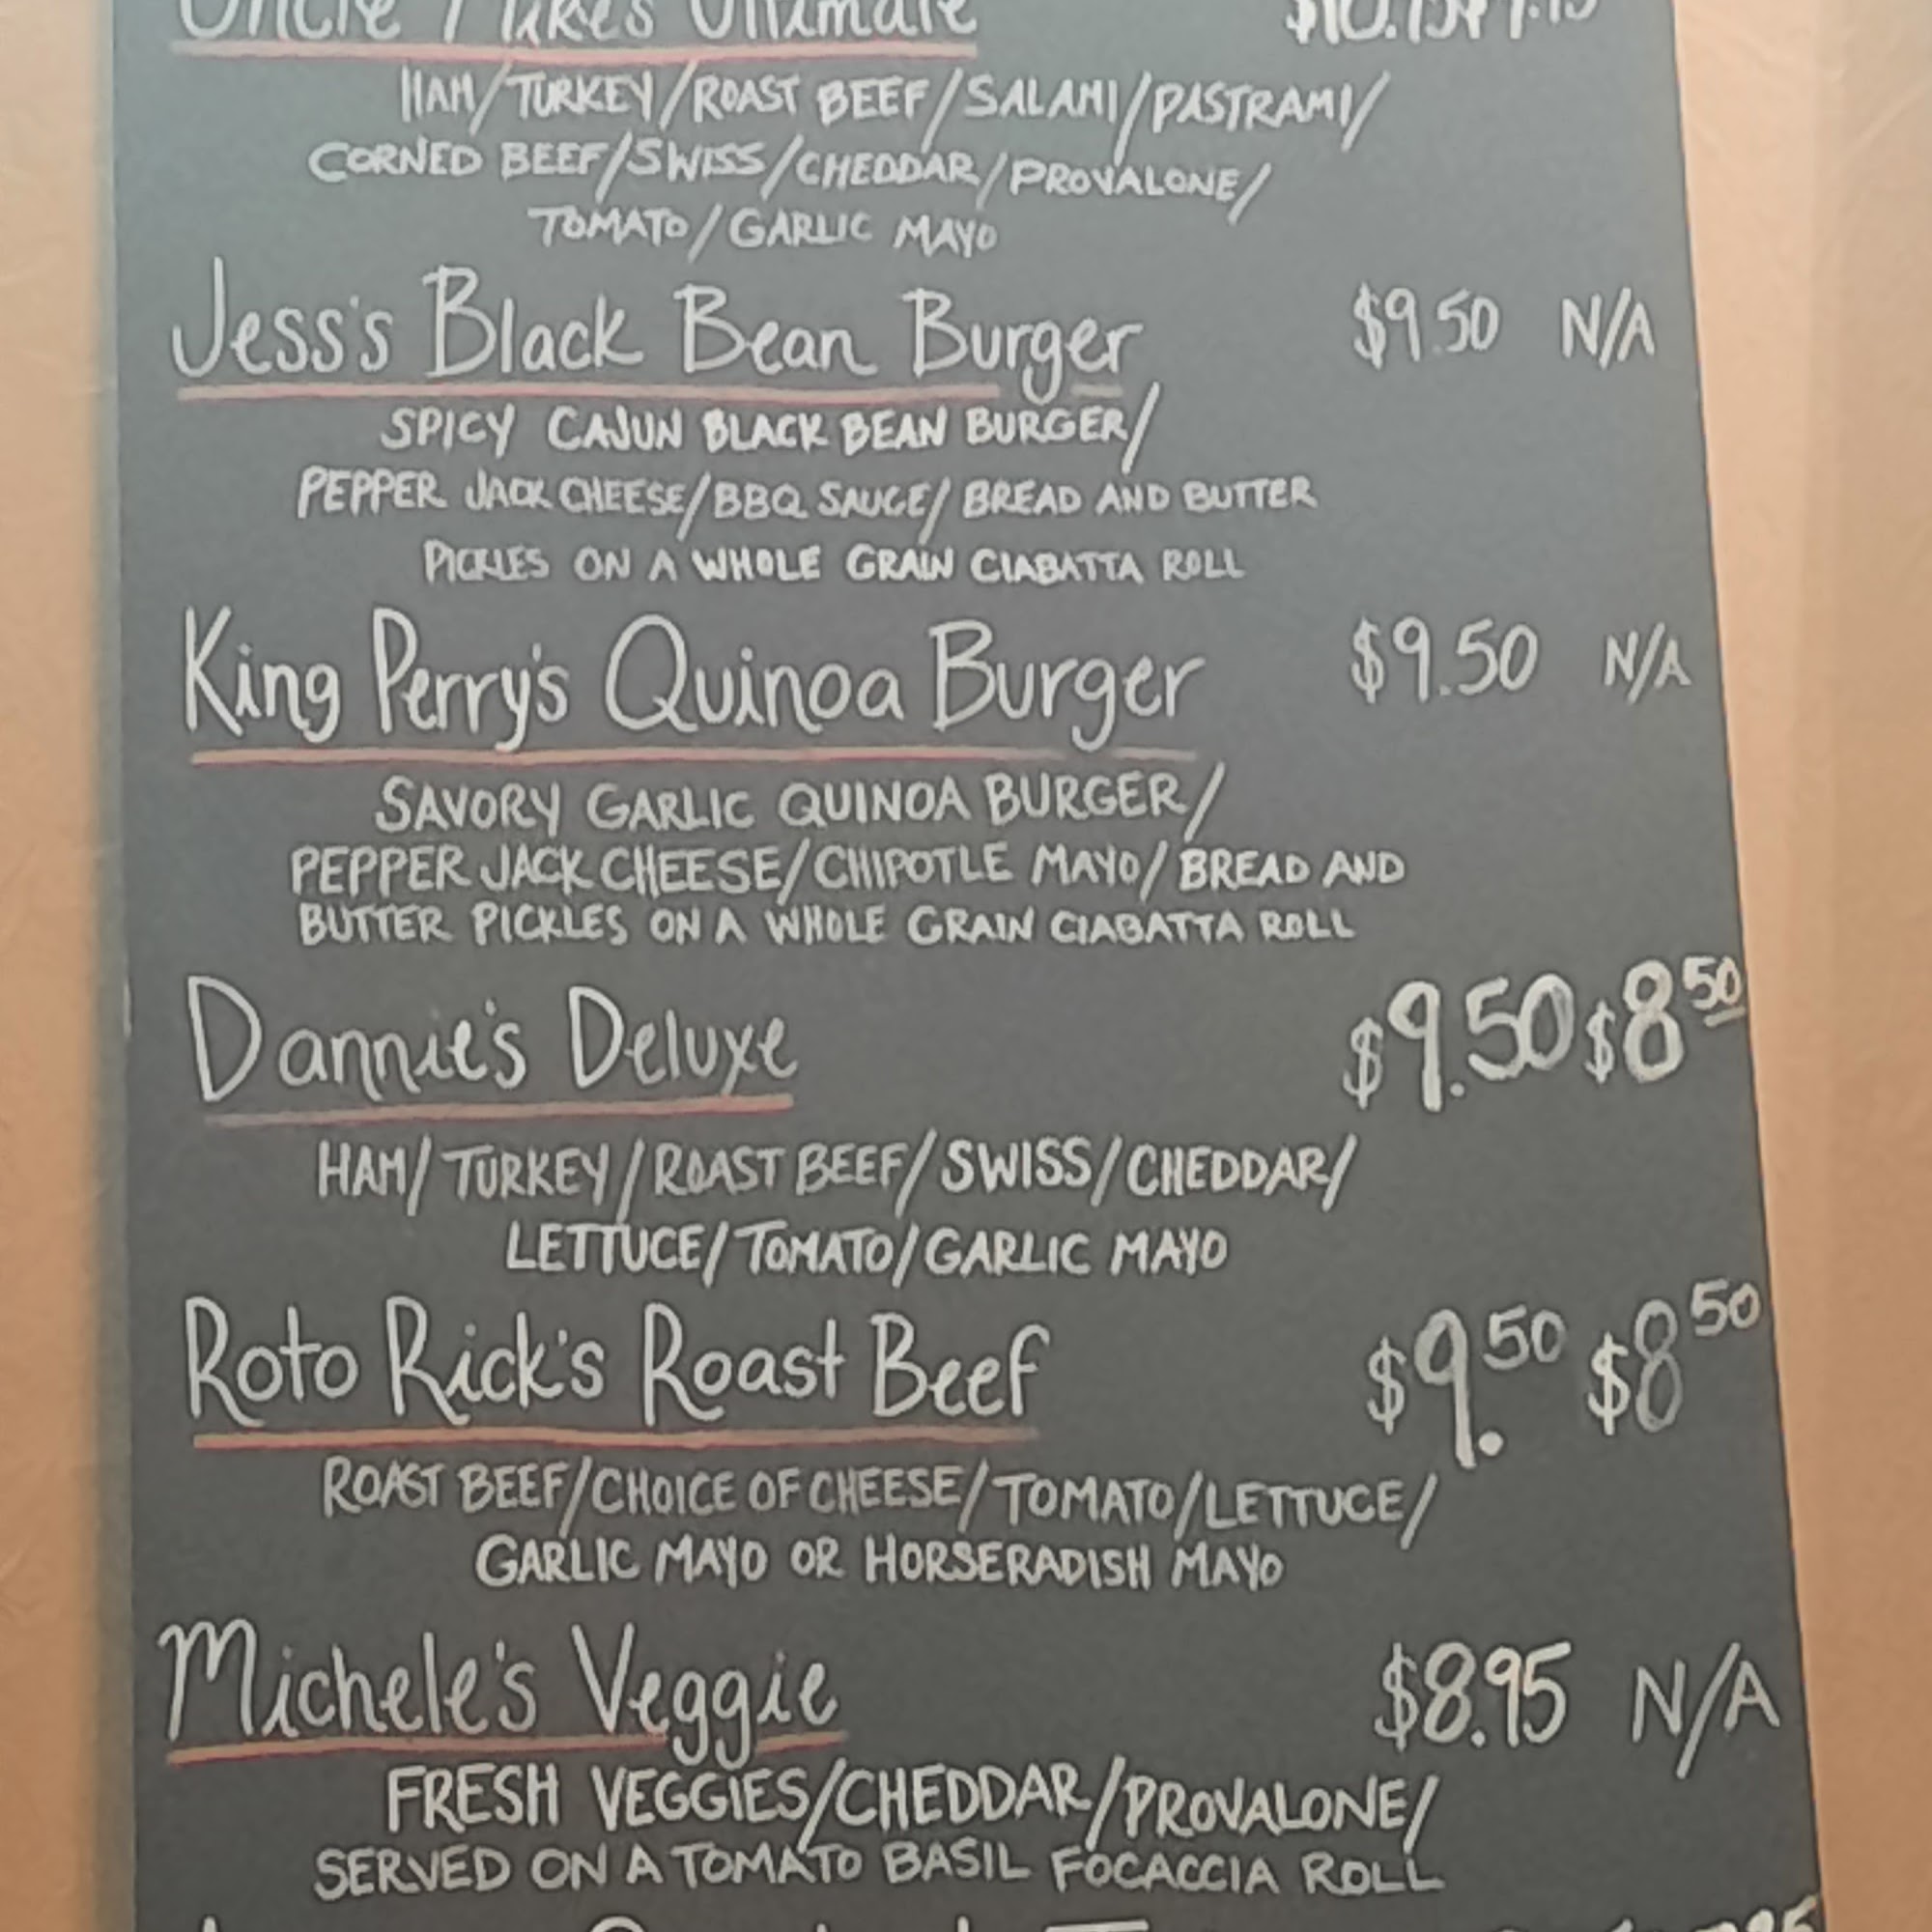 Uncle Mike's Ultimate
HAM/TURKEY/ROAST BEEF/SALAMI/PASTRAMI/
CORNED BEEF/SWISS/CHEDDAR/PROVALONE/
TOMATO/GARLIC MAYO
Jess's Black Bean Burger $9.50 N/A
SPICY CAJUN BLACK BEAN BURGER/
PEPPER JACK CHEESE/BBQ SAUCE/BREAD AND BUTTER
PICKLES ON A WHOLE GRAIN CIABATTA ROLL
King Perry's Quinoa Burger $9.50 N/A
SAVORY GARLIC QUINOA BURGER/
PEPPER JACK CHEESE/CHIPOTLE MAYO/BREAD AND
BUTTER PICKLES ON A WHOLE GRAIN CIABATTA ROLL
Dannie's Deluxe $9.50 $8 50
HAM/TURKEY/ROAST BEEF/SWISS/CHEDDAR/
LETTUCE/TOMATO/GARLIC MAYO
Roto Rick's Roast Beef $9.50 $8 50
ROAST BEEF/CHOICE OF CHEESE/TOMATO/LETTUCE/
GARLIC MAYO OR HORSERADISH MAYO
Michele's Veggie $8.95 N/A
FRESH VEGGIES/CHEDDAR/PROVALONE/
SERVED ON A TOMATO BASIL FOCACCIA ROLL